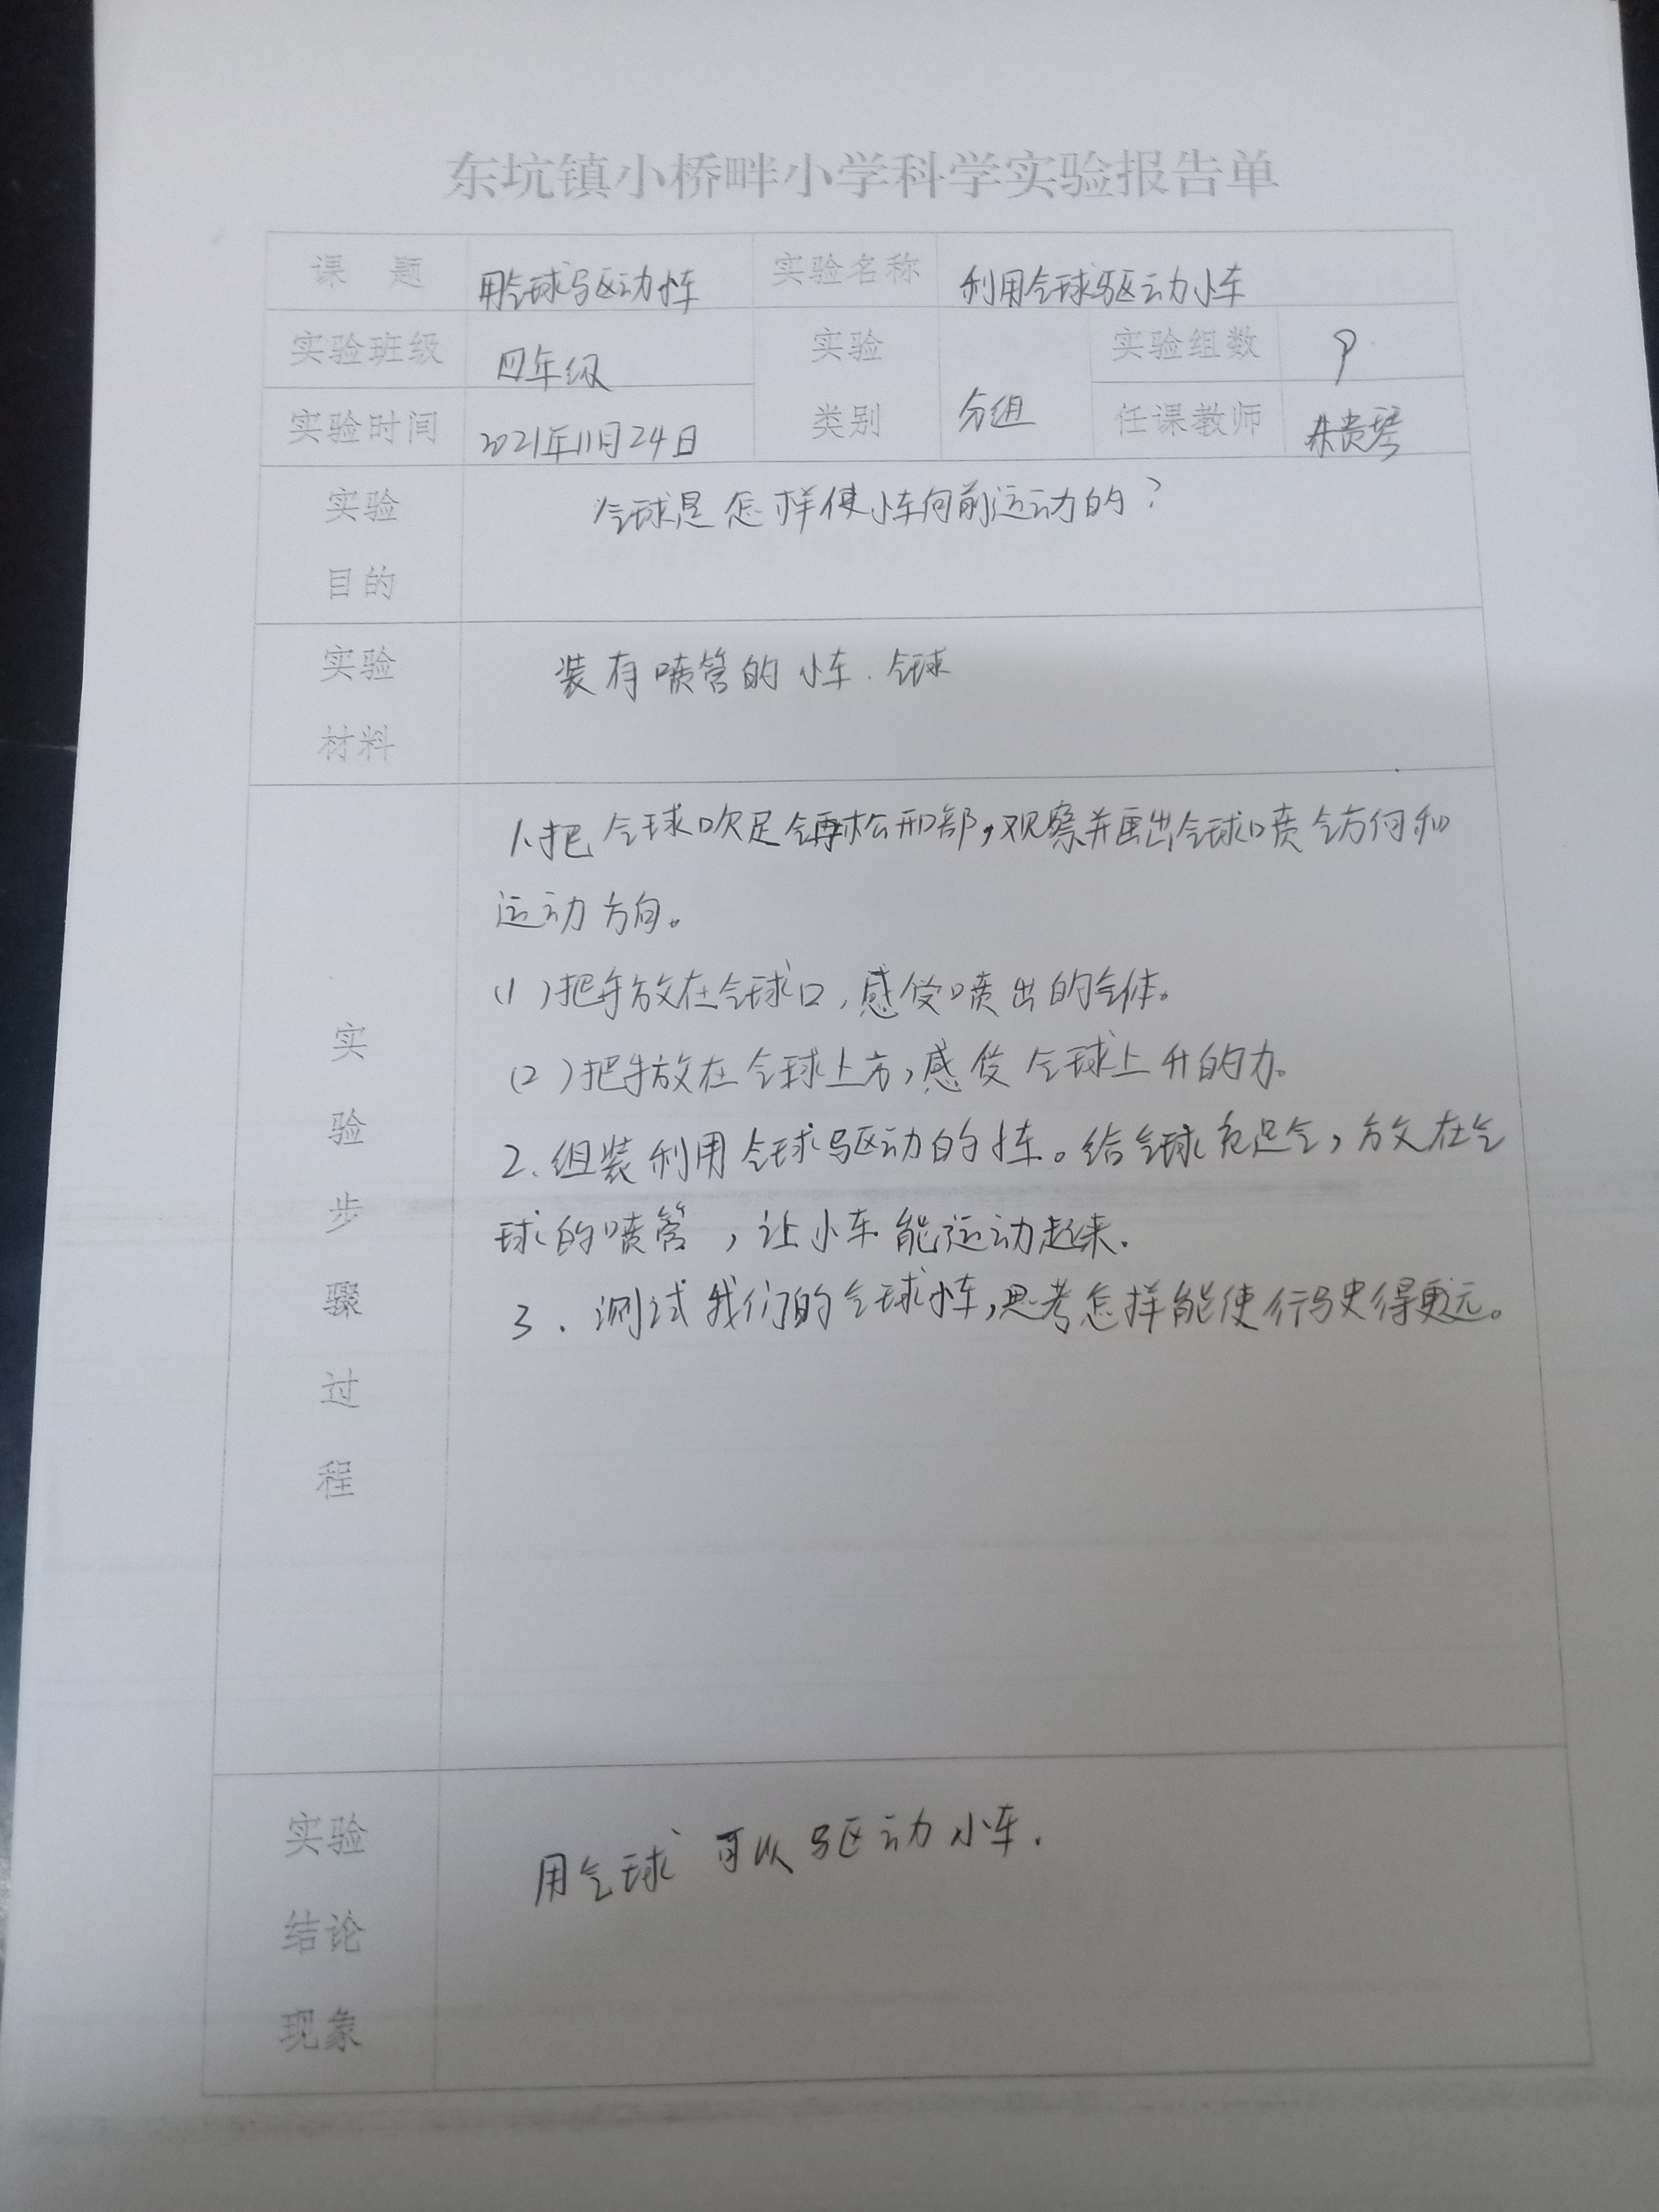 东坑镇小桥畔小学科学实验报告单
课 题 用气球驱动小车 实验名称 利用气球驱动小车
实验班级 四年级 实验 实验组数
实验时间 2021年11月24日 类别 分组 任课教师 朱贵琴
实验 气球是怎样使小车向前运动的?
目的
实验 装有喷管的小车.气球
材料
1.把气球吹足气再松开口部,观察并画出气球喷气方向和
运动方向。
(1)把手放在气球口,感受喷出的气体。
(2)把手放在气球上方,感受气球上升的力。
2.组装利用气球驱动的小车。给气球充足气,放在气
球的喷管,让小车能运动起来.
3.测试我们的气球小车,思考怎样能使行驶得更远。
实
验
步
骤
过
程
实验 用气球可以驱动小车.
结论
现象